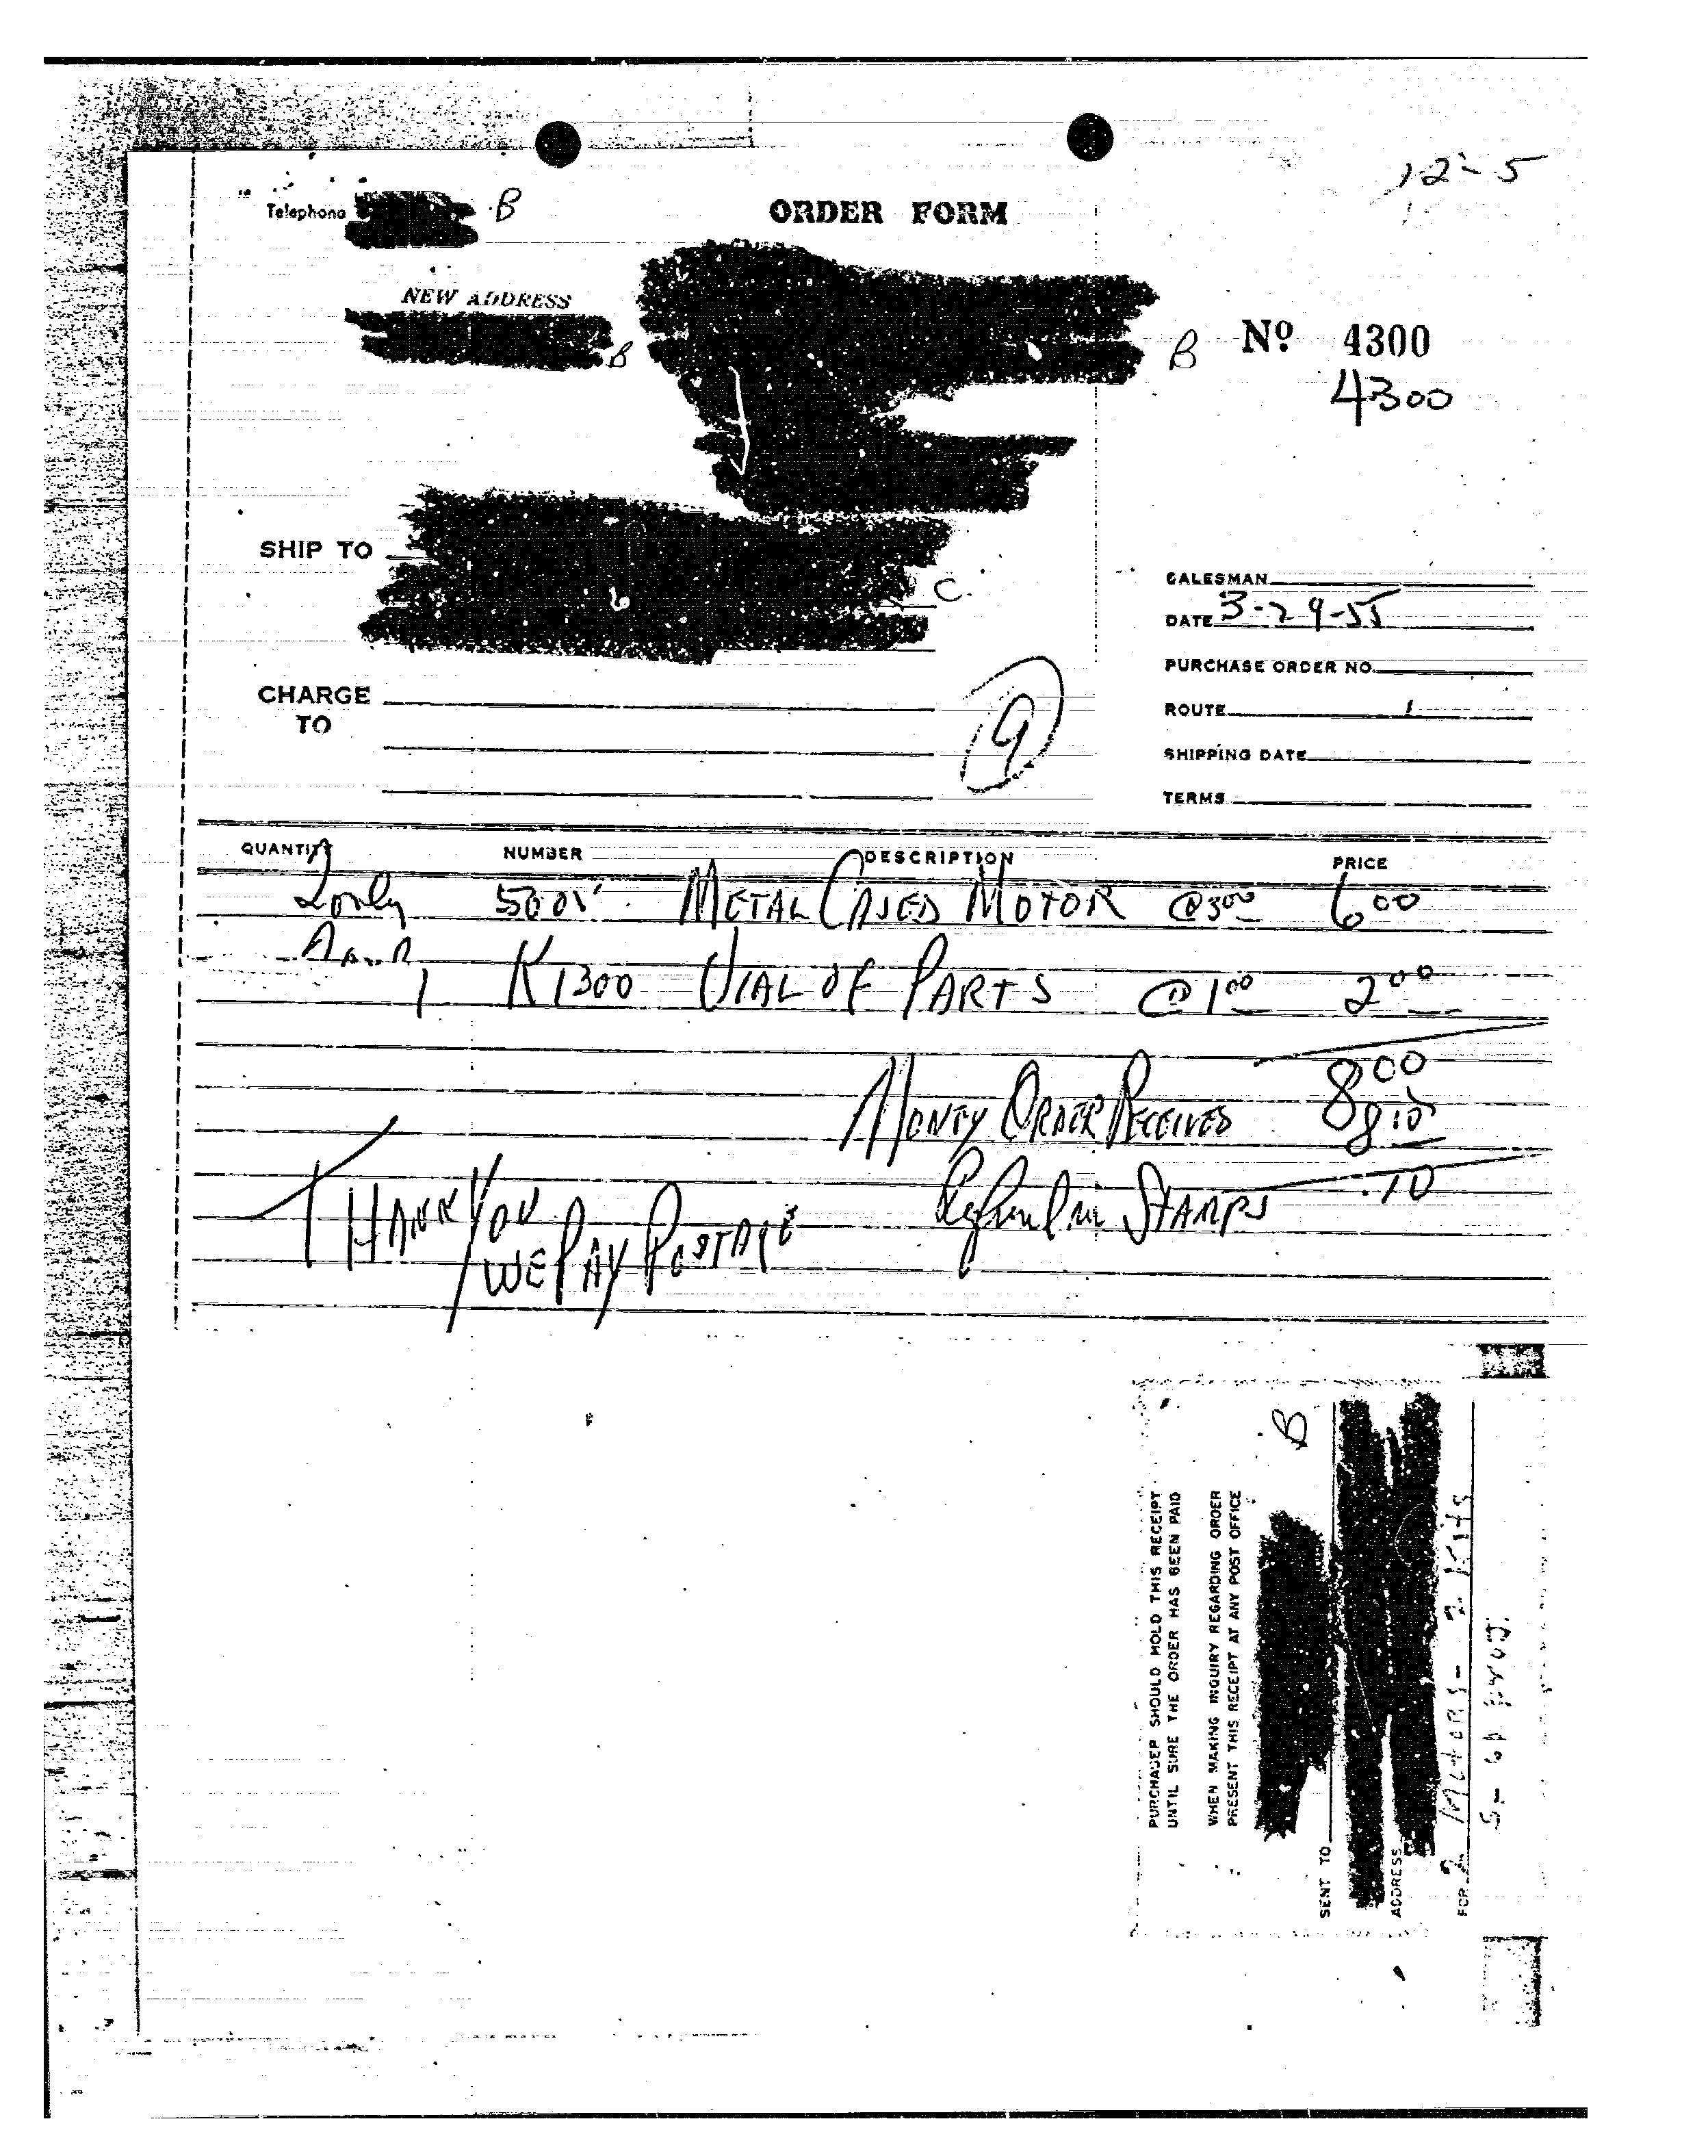 12-5
Telephone B
ORDER FORM
NEW ADDRESS
B
B
Nº 4300
4300
SHIP TO
C.
SALESMAN
DATE 3-29-55
PURCHASE ORDER NO.
ROUTE 1
CHARGE
TO
9
SHIPPING DATE
TERMS
QUANTITY NUMBER DESCRIPTION PRICE
2 only METAL CASED MOTOR @ 300 6 00
K1300 VIAL OF PARTS @ 1 00 2 00
8 00
MONEY ORDER RECEIVED 8 10
Refund in STAMPS .10
THANK YOU
WE PAY POSTAGE
PURCHASER SHOULD HOLD THIS RECEIPT
UNTIL SURE THE ORDER HAS BEEN PAID
WHEN MAKING INQUIRY REGARDING ORDER
PRESENT THIS RECEIPT AT ANY POST OFFICE
B
SENT TO
ADDRESS
FOR 2 Motors - 2 Kits